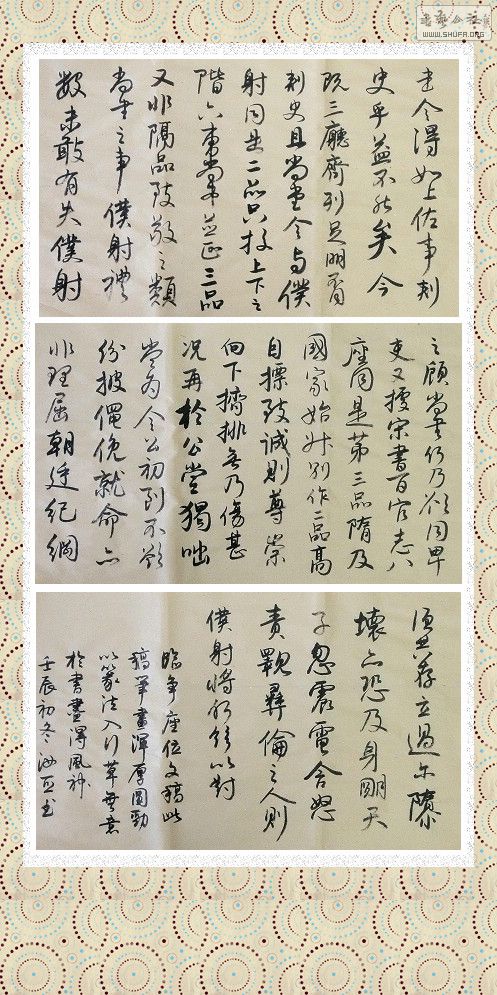 WWW.SHUFA.ORG
書令得如上佐事刺
史乎益不然矣今
既三廳齊列足明
刺史且尚書令与僕
射同是二品只校上下之
階六曹尚書並正三品
又非隔品致敬之類
尚書之事僕射禮
數未敢有失僕射
之顧尚書何乃欲同卑
吏又據宋書百官志八
座同是第三品隋及
國家始升別作二品高
自標致誠則尊崇
向下擠排無乃傷甚
況再於公堂猲咄
當為令公初到不欲
紛披僶俛就命亦
非理屈朝廷紀綱
須共存立過尔隳
壞亦恐及身明天
子忽震電含怒
責斁彝倫之人則
僕射將何辭以對
臨爭座位文稿此
稿筆畫渾厚圓勁
以篆法入行草無意
於書盡得風神
壬辰初冬汝書